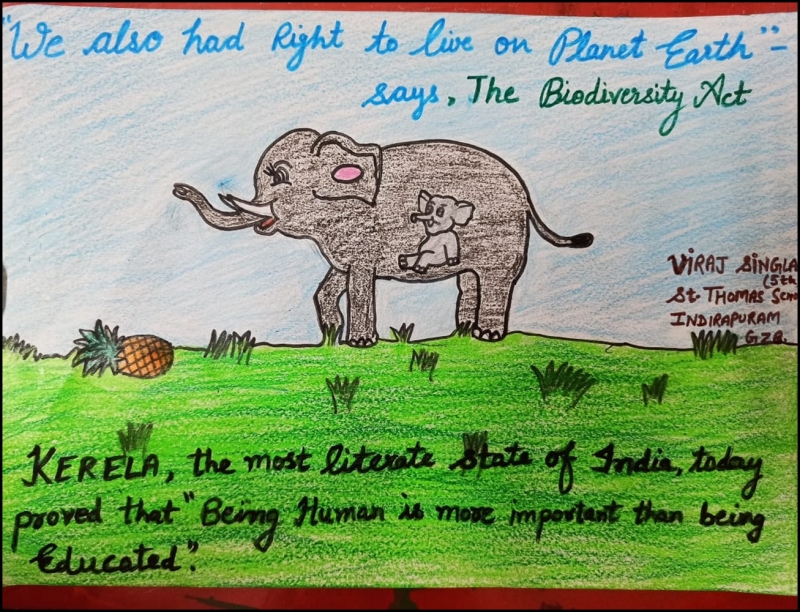 "We also had Right to live on Planet Earth"-
says, The Biodiversity Act
VIRAJ SINGLA
(5th
St. THOMAS
INDIRAPURAM
GZB.
KERELA, the most literate State of India, today
proved that "Being Human is more important than being
Educated".